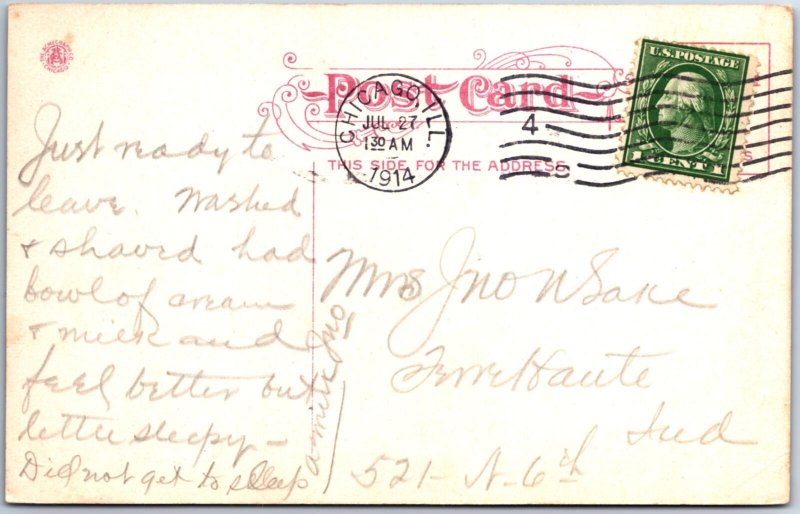 THE ACMEGRAPH CO.
CHICAGO
Post Card
THIS SIDE FOR THE ADDRESS
CHICAGO, ILL.
JUL 27
1 30 AM
1914
4
U.S. POSTAGE
1 CENT 1
Just ready to
leave. Washed
& shaved had
bowl of cream
& milk and
feel better but
little sleepy –
Did not get to sleep
Jno
Mrs Jno W
Terre Haute
Ind
521 – N – 6th